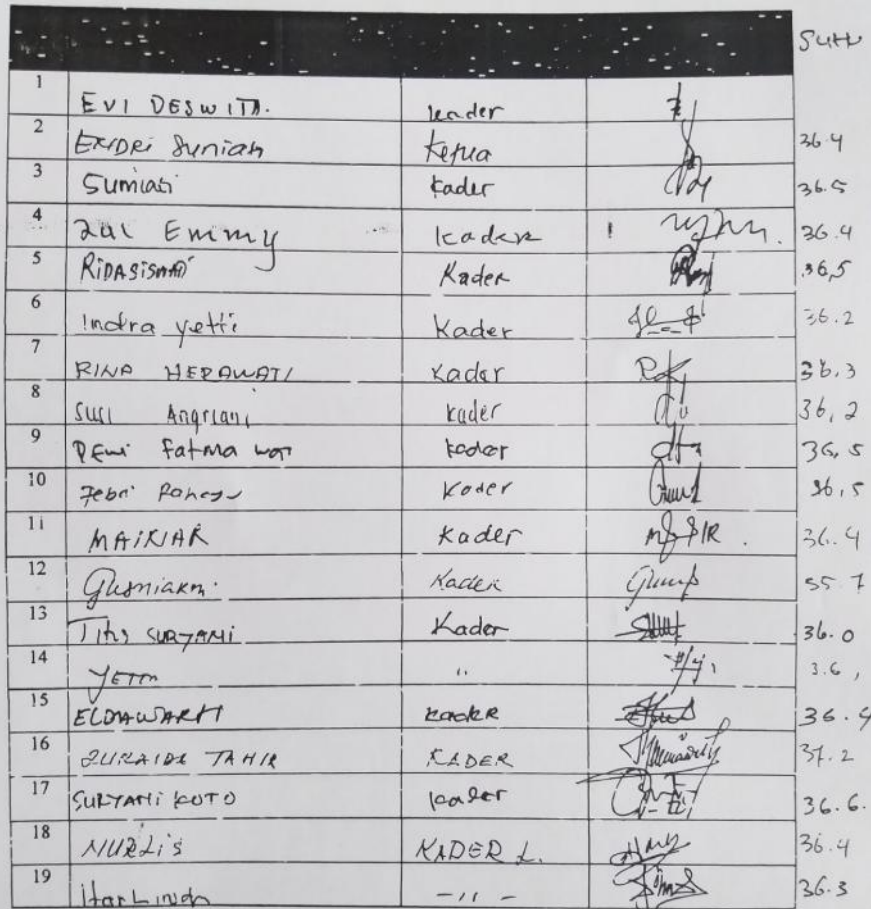 Suhu
1 EVI DESWITA. kader
2 Ketua 36.4
3 Sumiati kader 36.5
4 Zul Emmy kader 36.4
5 RIDASISMAN Kader 36,5
6 Indra yetti Kader 36.2
7 RINA HERAWATI Kader 36.3
8 SUSI Angriani kader 36,2
9 DEWI Fatma wati kader 36,5
10 Febri Kader 36,5
11 MAIRIAR Kader 36.4
12 Kader 35.7
13 SURYAMI Kader 36.0
14 YETTI "
15 ELDAWARTI kader 36.4
16 ZURAIDA TAHIR KADER 37.2
17 SURYAMI KOTO kader 36.6.
18 NURLIS KADER L. 36.4
19 HarLinda -"- 36.3